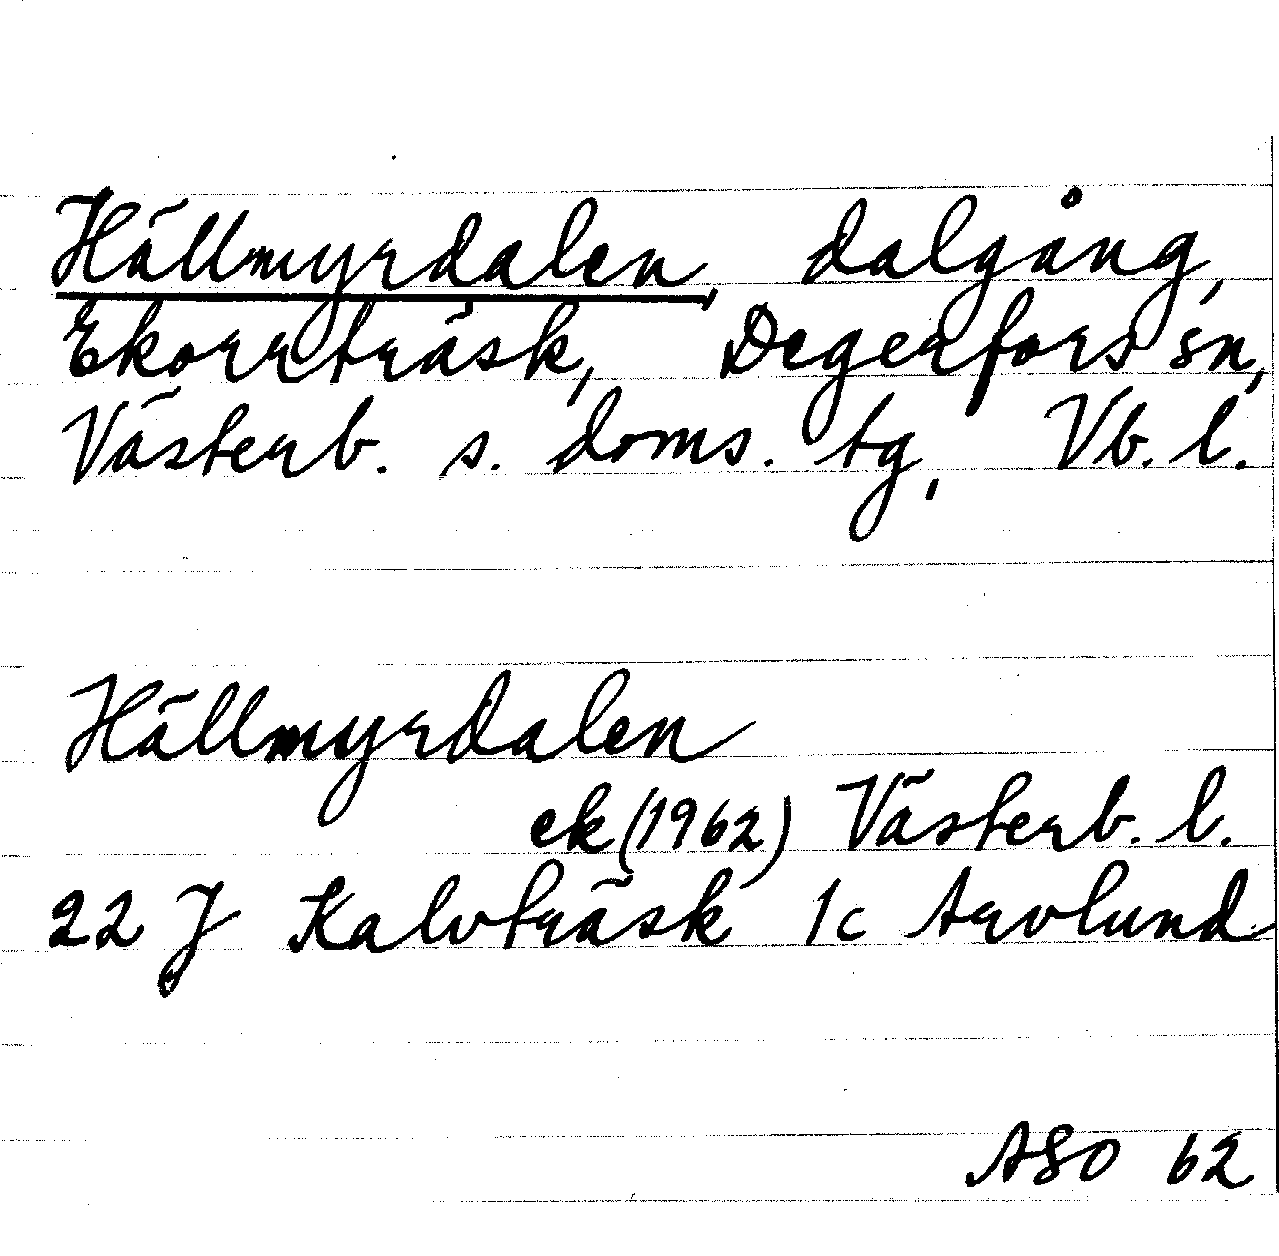 Hällmyrdalen, dalgång,
Ekorrträsk, Degerfors sn,
Västerb. s. doms. tg, Vb. l.
Hällmyrdalen
ek (1962) Västerb. l.
22 J Kalvträsk 1c Arvlund
ASO 62